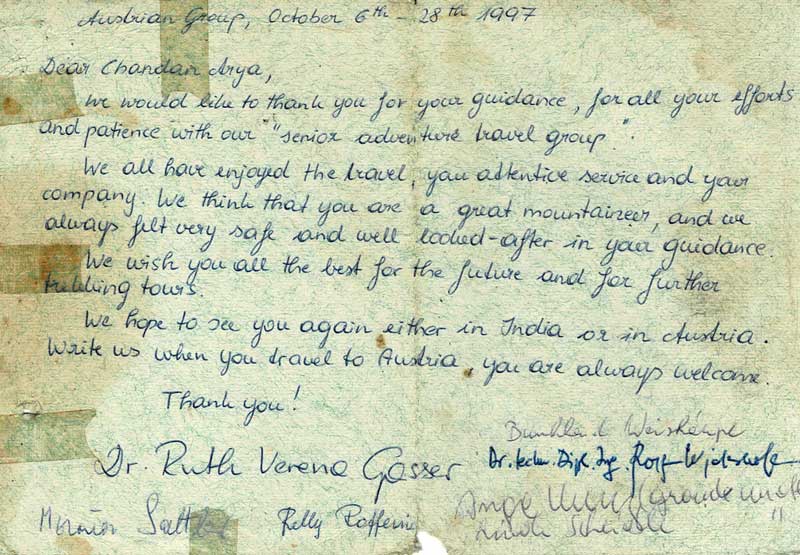 Austrian Group, October 6th - 28th 1997
Dear Chandan Arya,
We would like to thank you for your guidance, for all your efforts
and patience with our "senior adventure travel group".
We all have enjoyed the travel, you attentive service and your
company. We think that you are a great mountaineer, and we
always felt very safe and well looked-after in your guidance.
We wish you all the best for the future and for further
trekking tours.
We hope to see you again either in India or in Austria.
Write us when you travel to Austria, you are always welcome.
Thank you!
Dr. Ruth Verena Gasser